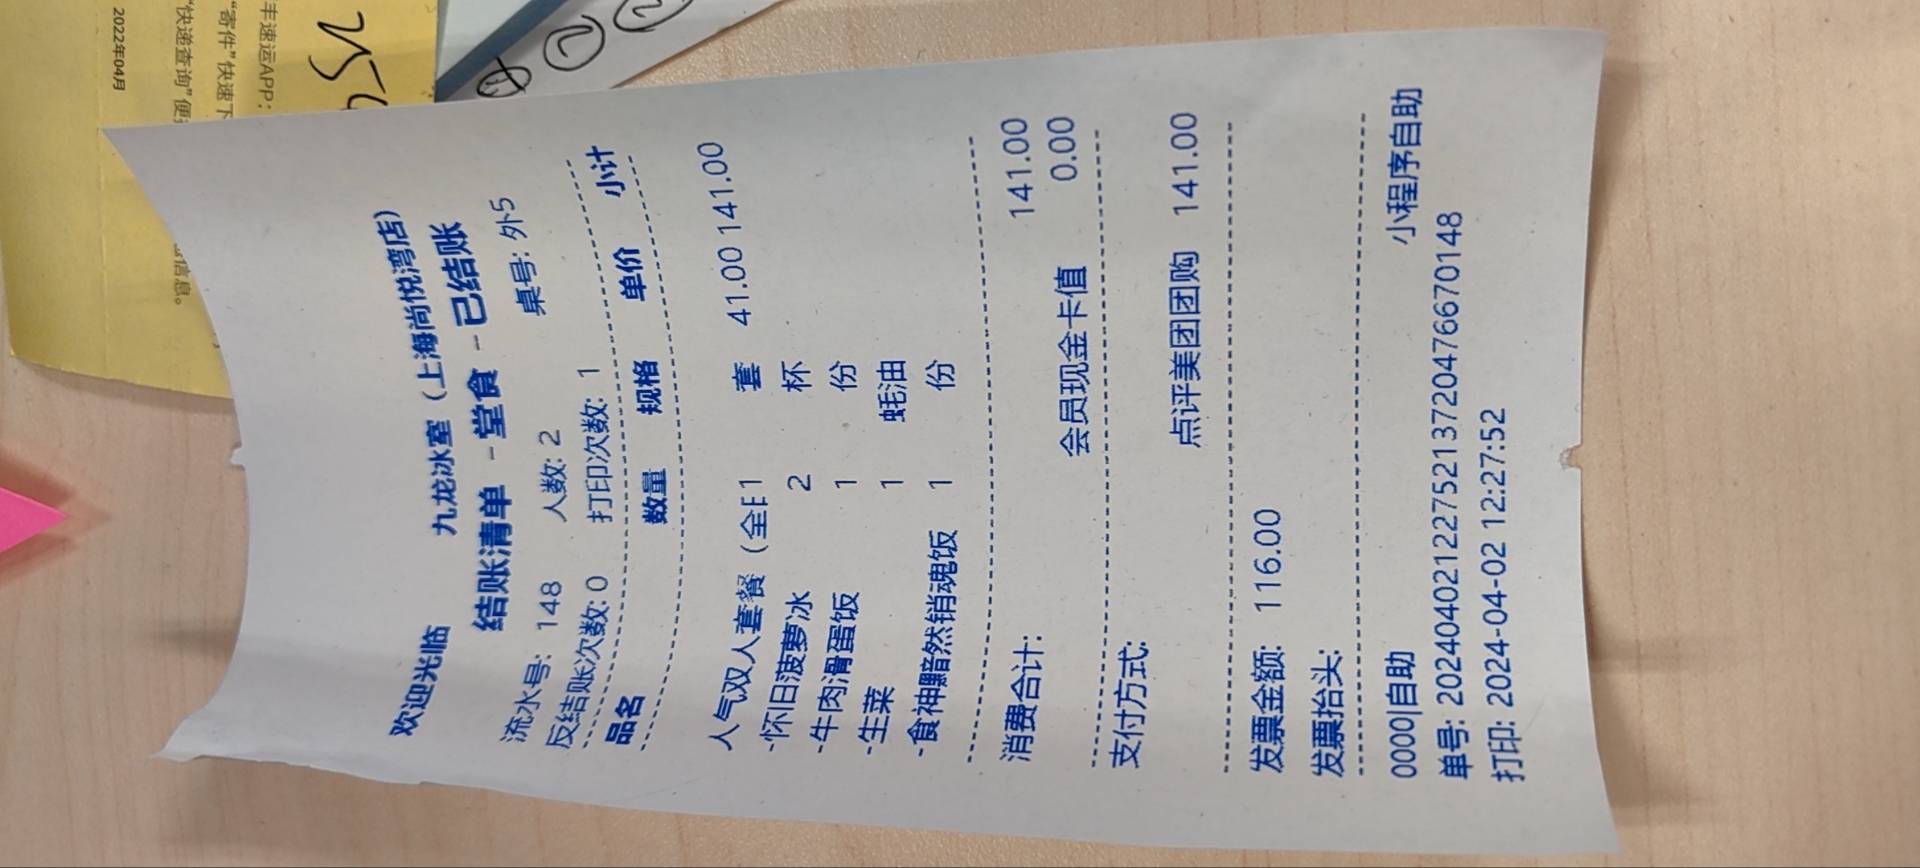 欢迎光临 九龙冰室（上海尚悦湾店）
结账清单 - 堂食 - 已结账
流水号: 148 人数: 2 桌号: 外5
反结账次数: 0 打印次数: 1
品名 数量 规格 单价 小计
人气双人套餐（全日 1 套 41.00 141.00
-怀旧菠萝冰 2 杯
-牛肉滑蛋饭 1 份
-生菜 1 蚝油
-食神黯然销魂饭 1 份
消费合计: 141.00
会员现金卡值 0.00
支付方式:
点评美团团购 141.00
发票金额: 116.00
发票抬头:
0000|自助 小程序自助
单号: 20240402122752137204766670148
打印: 2024-04-02 12:27:52
丰速运APP:
"寄件"快速下
"快递查询"便
2022年04月
信息。
2